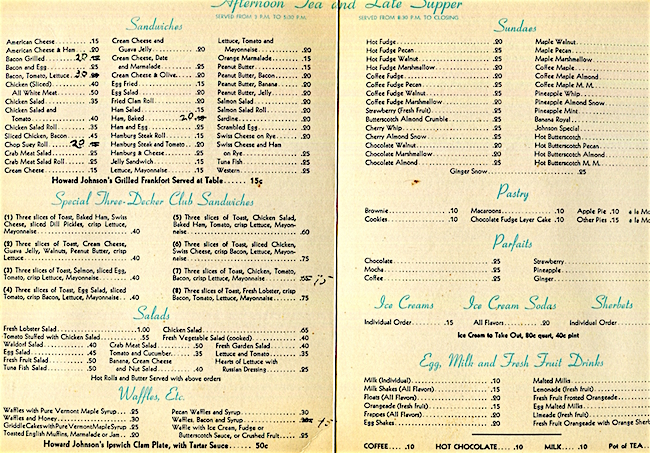 Afternoon Tea and Late Supper
SERVED FROM 3 P.M. TO 5:30 P.M.
SERVED FROM 8:30 P.M. TO CLOSING
Sandwiches
American Cheese .15
American Cheese & Ham .20
Bacon Grilled 20
Bacon and Egg .25
Bacon, Tomato, Lettuce 30
Chicken (Sliced) .40
All White Meat .50
Chicken Salad .35
Chicken Salad and
Tomato .40
Chicken Salad Roll .35
Sliced Chicken, Bacon .45
Chop Suey Roll 20
Crab Meat Salad .25
Crab Meat Salad Roll .25
Cream Cheese .15
Cream Cheese and
Guava Jelly .20
Cream Cheese, Date
and Marmalade .25
Cream Cheese & Olive .20
Egg Fried .15
Egg Salad .20
Fried Clam Roll .20
Ham Salad .15
Ham, Baked 20
Ham and Egg .25
Hamburg Steak Roll .15
Hamburg Steak and Tomato .20
Hamburg & Cheese .25
Jelly Sandwich .15
Lettuce, Mayonnaise .15
Lettuce, Tomato and
Mayonnaise .20
Orange Marmalade .15
Peanut Butter .15
Peanut Butter, Bacon .20
Peanut Butter, Banana .20
Peanut Butter, Jelly .20
Salmon Salad .20
Salmon Salad Roll .20
Sardine .20
Scrambled Egg .20
Swiss Cheese on Rye .20
Swiss Cheese and Ham
on Rye .25
Tuna Fish .25
Western .25
Howard Johnson's Grilled Frankfort Served at Table 15c
Special Three-Decker Club Sandwiches
(1) Three slices of Toast, Baked Ham, Swiss
Cheese, sliced Dill Pickles, crisp Lettuce,
Mayonnaise .40
(2) Three slices of Toast, Cream Cheese,
Guava Jelly, Walnuts, Peanut Butter, crisp
Lettuce .40
(3) Three slices of Toast, Salmon, sliced Egg,
Tomato, crisp Lettuce, Mayonnaise .40
(4) Three slices of Toast, Egg Salad, sliced
Tomato, crisp Bacon, Lettuce, Mayonnaise .40
(5) Three slices of Toast, Chicken Salad,
Baked Ham, Tomato, crisp Lettuce, Mayon-
naise .60
(6) Three slices of Toast, sliced Chicken,
Swiss Cheese, crisp Bacon, Lettuce, Mayon-
naise .75
(7) Three slices of Toast, Chicken, Tomato,
Bacon, crisp Lettuce, Mayonnaise .65 75
(8) Three slices of Toast, Fresh Lobster, crisp
Bacon, Tomato, Lettuce, Mayonnaise .75
Salads
Fresh Lobster Salad 1.00
Chicken Salad .65
Tomato Stuffed with Chicken Salad .55
Fresh Vegetable Salad (cooked) .40
Waldorf Salad .40
Egg Salad .45
Fresh Fruit Salad .50
Tuna Fish Salad .50
Crab Meat Salad .50
Tomato and Cucumber .35
Banana, Cream Cheese
and Nut Salad .40
Fresh Garden Salad .40
Lettuce and Tomato .35
Hearts of Lettuce with
Russian Dressing .25
Hot Rolls and Butter Served with above orders
Waffles, Etc.
Waffles with Pure Vermont Maple Syrup .25
Waffles and Honey .30
Griddle Cakes with Pure Vermont Maple Syrup .25
Toasted English Muffins, Marmalade or Jam .20
Pecan Waffles and Syrup .30
Waffles, Bacon and Syrup 45
Waffle with Ice Cream, Fudge or
Butterscotch Sauce, or Crushed Fruit .25
Howard Johnson's Ipswich Clam Plate, with Tartar Sauce 50c
Sundaes
Hot Fudge .20
Hot Fudge Pecan .25
Hot Fudge Walnut .25
Hot Fudge Marshmallow .20
Coffee Fudge .20
Coffee Fudge Pecan .25
Coffee Fudge Walnut .25
Coffee Fudge Marshmallow .20
Strawberry (Fresh Fruit) .25
Butterscotch Almond Crumble .25
Cherry Whip .25
Cherry Almond Snow .25
Chocolate Walnut .20
Chocolate Marshmallow .20
Chocolate Almond .25
Maple Walnut
Maple Pecan
Maple Marshmallow
Coffee Maple
Coffee Maple Almond
Coffee Maple M. M.
Pineapple Whip
Pineapple Almond Snow
Pineapple Mint
Banana Royal
Johnson Special
Hot Butterscotch
Hot Butterscotch Pecan
Hot Butterscotch Almond
Hot Butterscotch M. M.
Ginger Snow .25
Pastry
Brownie .10
Macaroons .10
Apple Pie .10 a la Mo
Cookies .10
Chocolate Fudge Layer Cake .10
Other Pies .15 a la Mo
Parfaits
Chocolate .25
Mocha .25
Coffee .25
Strawberry
Pineapple
Ginger
Ice Creams
Ice Cream Sodas
Sherbets
Individual Order .15
All Flavors .20
Individual Order
Ice Cream to Take Out, 80c quart, 40c pint
Egg, Milk and Fresh Fruit Drinks
Milk (Individual) .10
Milk Shakes (All Flavors) .15
Floats (All Flavors) .20
Orangeade (fresh fruit) .15
Frappes (All Flavors) .20
Egg Shakes .20
Malted Milks
Lemonade (fresh fruit)
Fresh Fruit Frosted Orangeade
Egg Malted Milks
Limeade (fresh fruit)
Fresh Fruit Orangeade with Orange Sherb
COFFEE .10 HOT CHOCOLATE .10 MILK .10 Pot of TEA